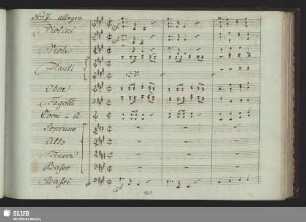 No. 7. allegro
Violini
Viole
Flauti
Oboe
Fagotti
Corni - A
Soprano
Alto
Tenore
Basso
Bassi
SLUB